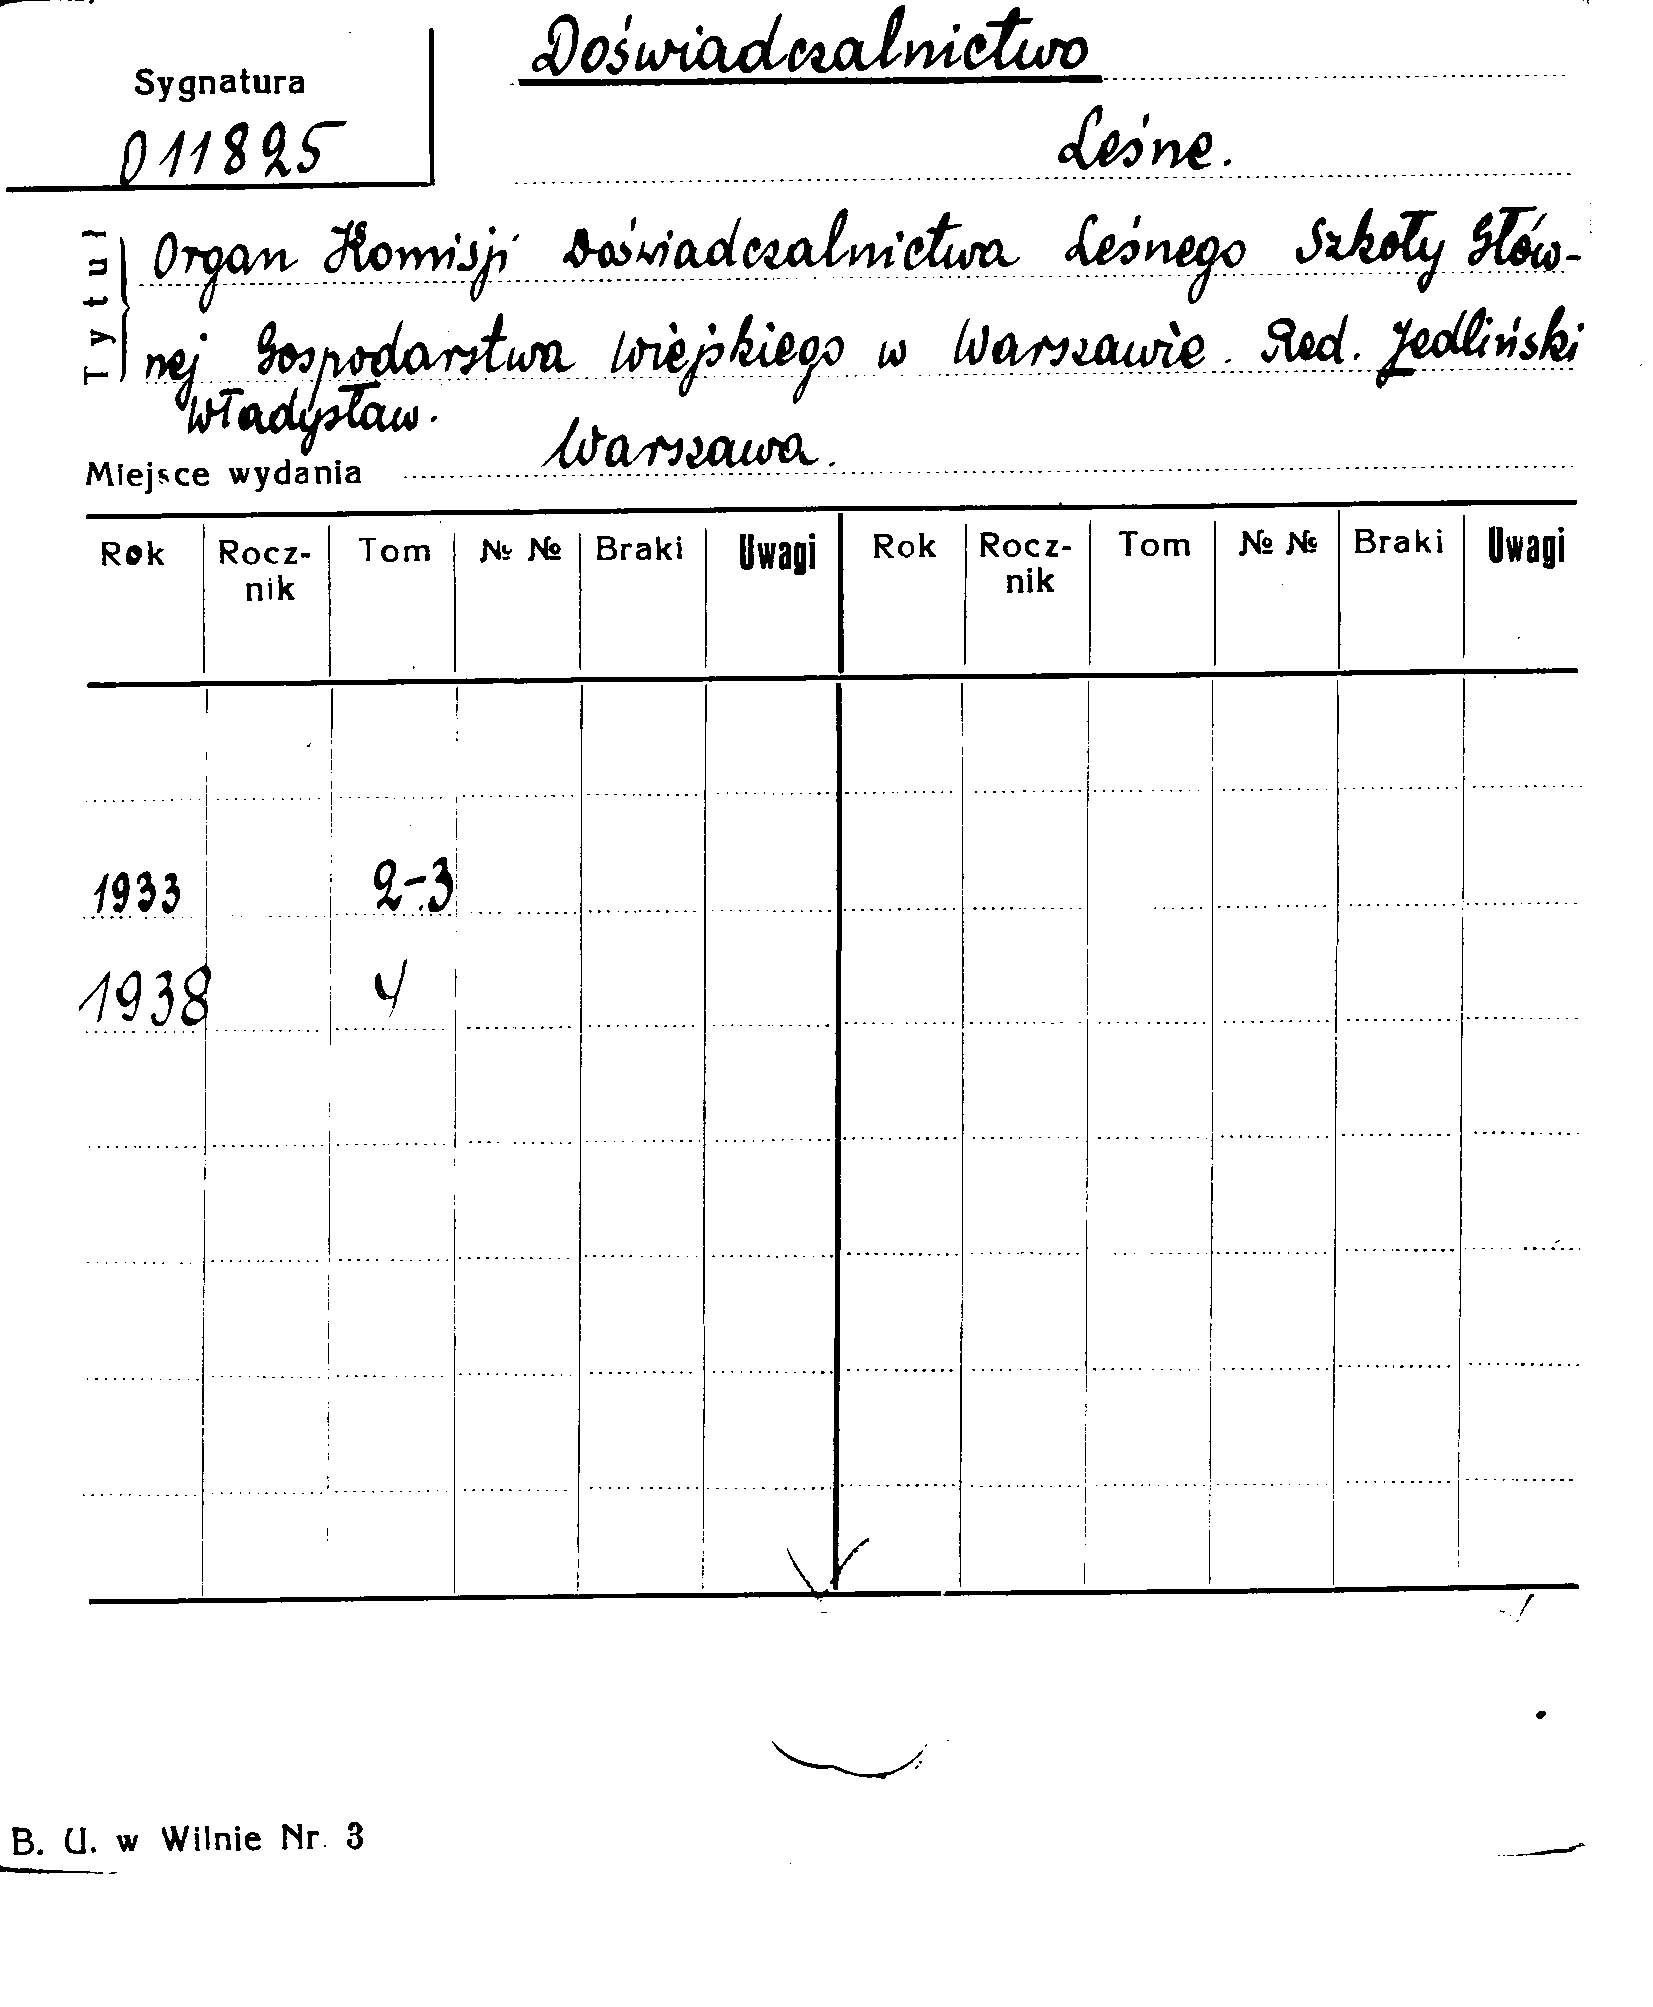 Doświadczalnictwo
Sygnatura
011825
Leśne.
Tytuł
Organ Komisji Doświadczalnictwa Leśnego Szkoły Głów-
nej Gospodarstwa Wiejskiego w Warszawie. Red. Jedliński
Władysław.
Miejsce wydania Warszawa.
Rok Rocz- Tom №№ Braki Uwagi Rok Rocz- Tom №№ Braki Uwagi
nik nik
1933 2-3
1938 4
B. U. w Wilnie Nr. 3